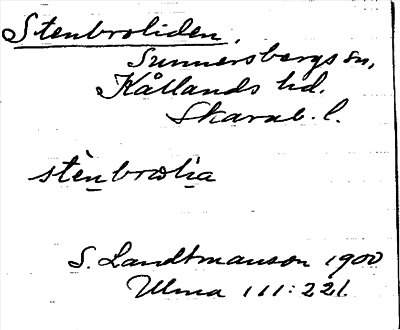 Stenbroliden.
Sunnersbergs sn,
Kållands hd.
Skarab. l.
stènbrolia
S. Landtmanson 1900
Ulma 111:221.